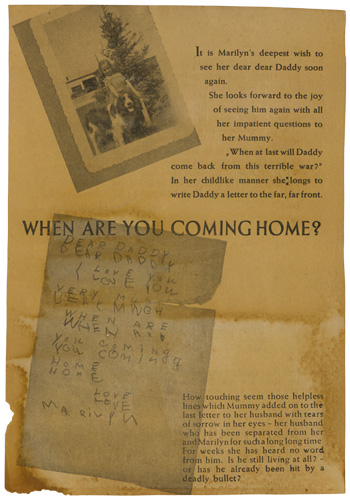 It is Marilyn's deepest wish to
see her dear dear Daddy soon
again.
She looks forward to the joy
of seeing him again with all
her impatient questions to
her Mummy.
„When at last will Daddy
come back from this terrible war?"
In her childlike manner she longs to
write Daddy a letter to the far, far front.
WHEN ARE YOU COMING HOME?
DEAR DADDY
DEAR DADDY
I LOVE YOU
LOVE YOU
VERY MUCH
VERY MUCH
WHEN ARE
WHEN ARE
YOU COMING
YOU COMING
HOME
HOME
LOVE
LOVE
MARILYN
How touching seem those helpless
lines which Mummy added on to the
last letter to her husband with tears
of sorrow in her eyes - her husband
who has been separated from her
and Marilyn for such a long long time
For weeks she has heard no word
from him. Is he still living at all? -
or has he already been hit by a
deadly bullet?